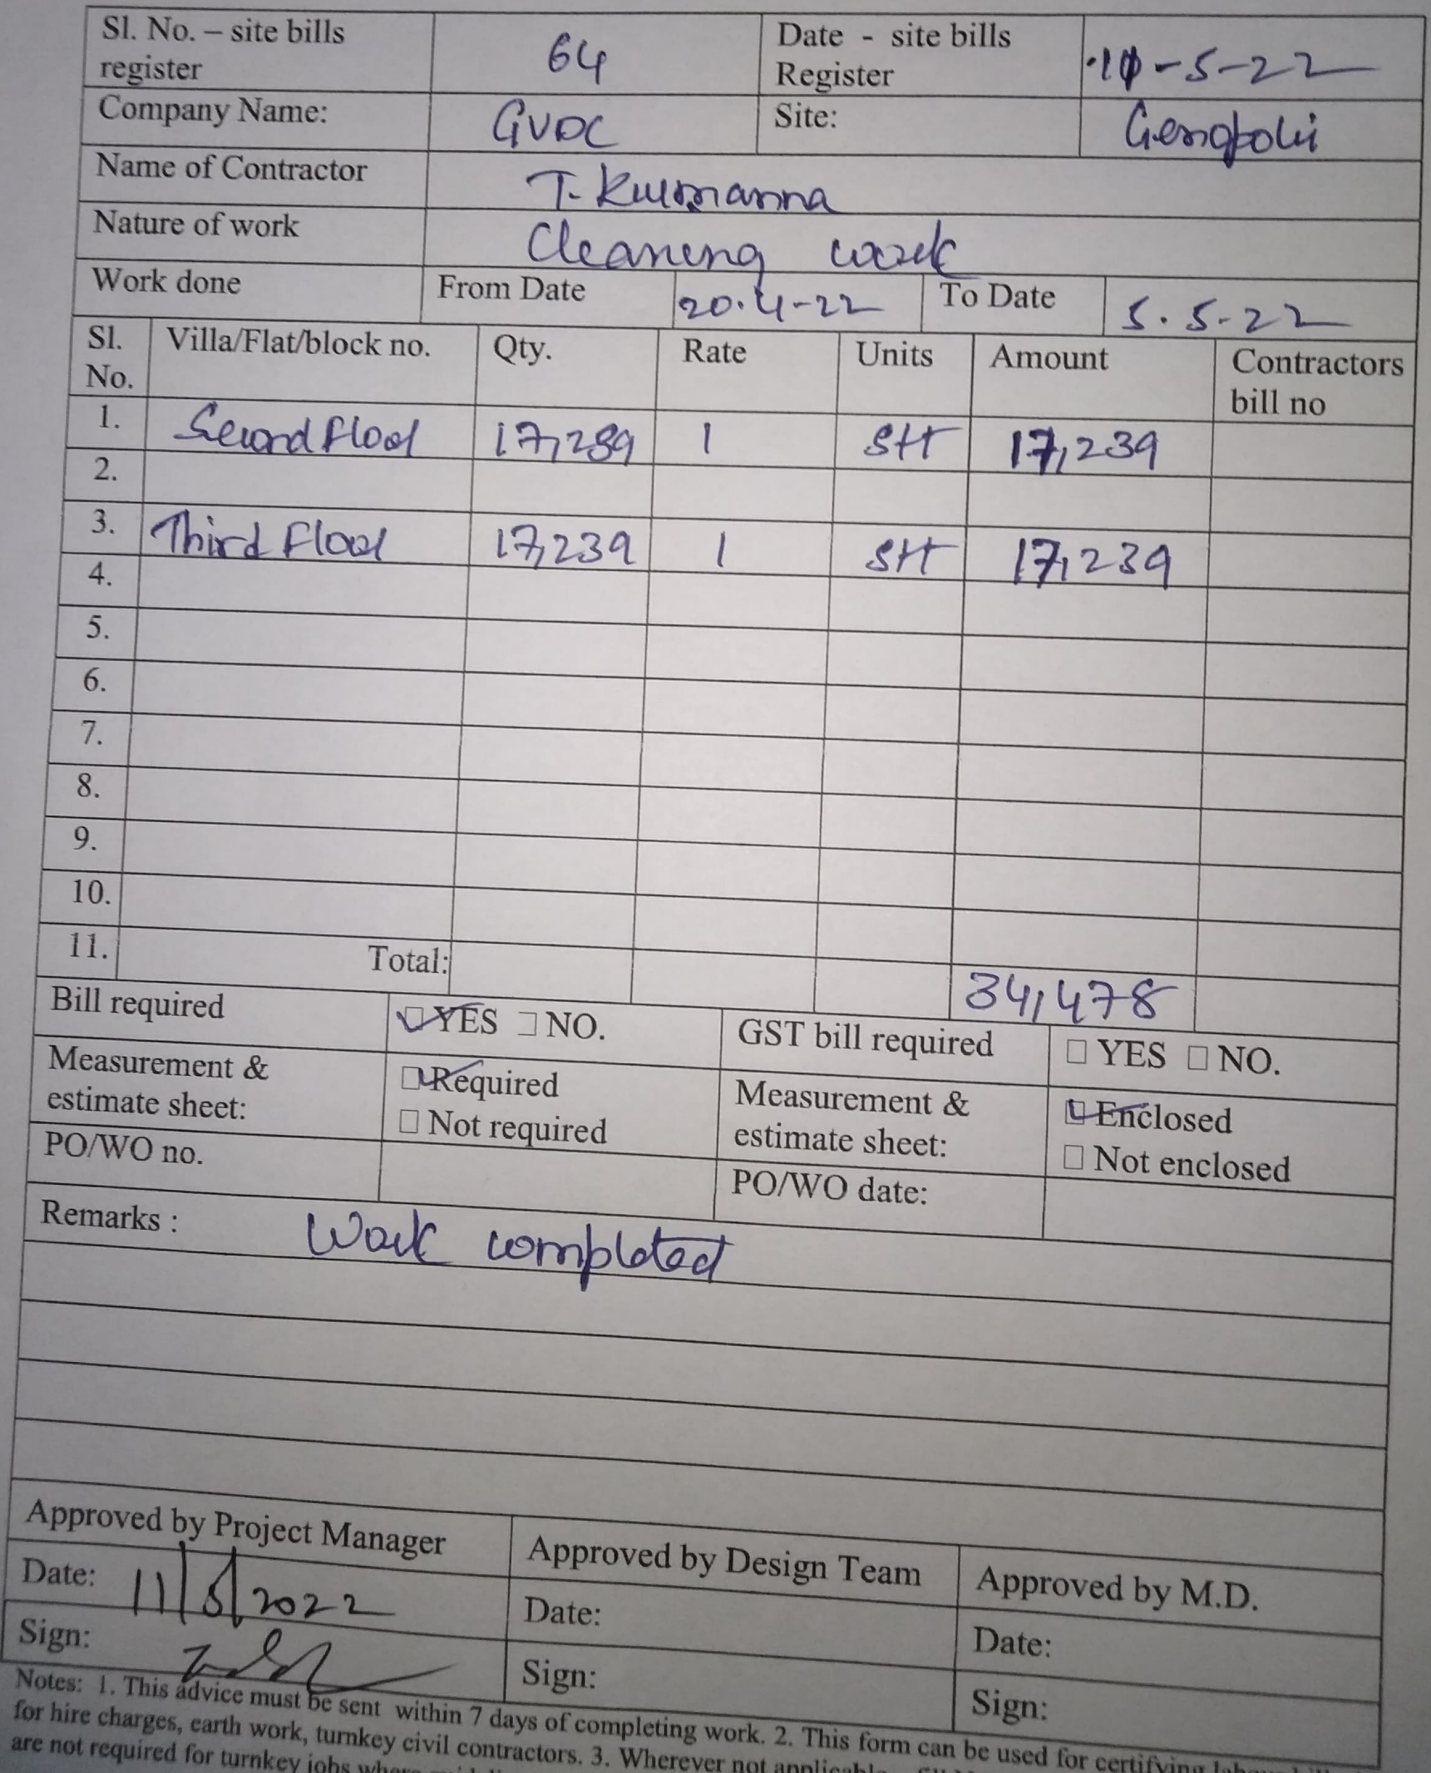 Sl. No. – site bills register 64 Date - site bills Register 10-5-22
Company Name: GVDC Site: Genopoli
Name of Contractor T. Kurmanna
Nature of work Cleaning work
Work done From Date 20.4-22 To Date 5.5-22
Sl. No. Villa/Flat/block no. Qty. Rate Units Amount Contractors bill no
1. Second Floor 17,239 1 Sft 17,239
2.
3. Third Floor 17,239 1 Sft 17,239
4.
5.
6.
7.
8.
9.
10.
11. Total: 34,478
Bill required ☑ YES ☐ NO. GST bill required ☐ YES ☐ NO.
Measurement & estimate sheet: ☑ Required ☐ Not required Measurement & estimate sheet: ☑ Enclosed ☐ Not enclosed
PO/WO no. PO/WO date:
Remarks : Work completed
Approved by Project Manager Approved by Design Team Approved by M.D.
Date: 11/5/2022 Date: Date:
Sign: Sign: Sign:
Notes: 1. This advice must be sent within 7 days of completing work. 2. This form can be used for certifying
for hire charges, earth work, turnkey civil contractors. 3. Wherever not
are not required for turnkey jobs